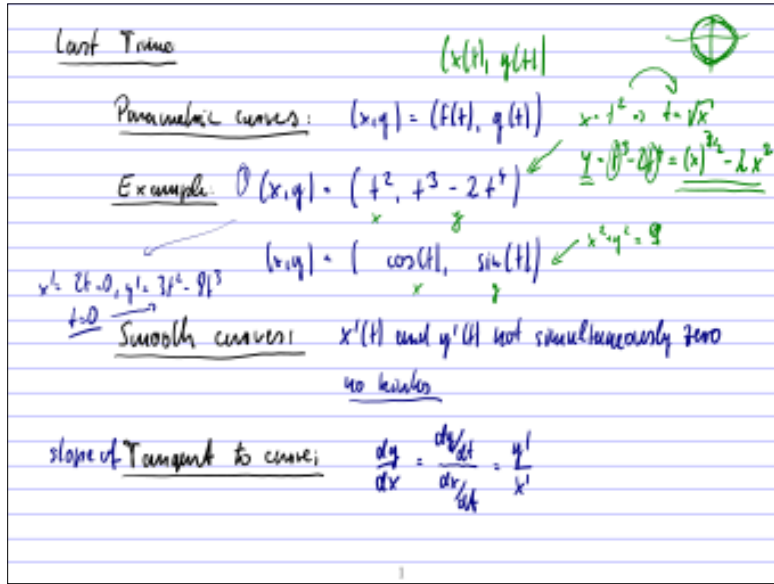 Last Time
(x(t), y(t)
Parametric curves: (x,y) = (f(t), g(t)) x = t² ⇒ t = √x
y = (t³ - 2t⁴) = (x)^{3/2} - 2x²
Example: 1) (x,y) = (t², t³ - 2t⁴)
x y
(x,y) = ( cos(t), sin(t)) x²+y² =
x y
x' = 2t = 0, y' = 3t² - 8t³
t=0
Smooth curves: x'(t) and y'(t) not simultaneously zero
no kinks
slope of Tangent to curve: dy/dx = (dy/dt)/(dx/dt) = y'/x'
1